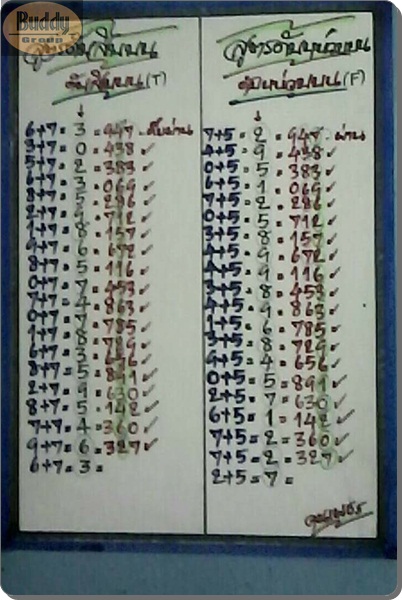 Buddy
Group
(T)
↓
6+7=3=947 ผ่าน✓
3+7=0=438✓
5+7=2=383✓
6+7=3=069✓
8+7=5=286✓
2+7=9=712✓
1+7=8=157✓
9+7=6=672✓
8+7=5=116✓
0+7=7=453✓
7+7=4=863✓
0+7=7=785✓
1+7=8=729✓
6+7=3=656✓
8+7=5=891
2+7=9=630✓
8+7=5=142✓
7+7=4=360✓
9+7=6=327✓
6+7=3=
(F)
↓
7+5=2=947 ผ่าน
4+5=9=438✓
0+5=5=383✓
6+5=1=069✓
7+5=2=286✓
0+5=5=712✓
3+5=8=157✓
4+5=9=672✓
4+5=9=116✓
3+5=8=453✓
4+5=9=863✓
1+5=6=785✓
3+5=8=729✓
9+5=4=656✓
0+5=5=891✓
2+5=7=630✓
6+5=1=142✓
7+5=2=360✓
7+5=2=327✓
2+5=7=